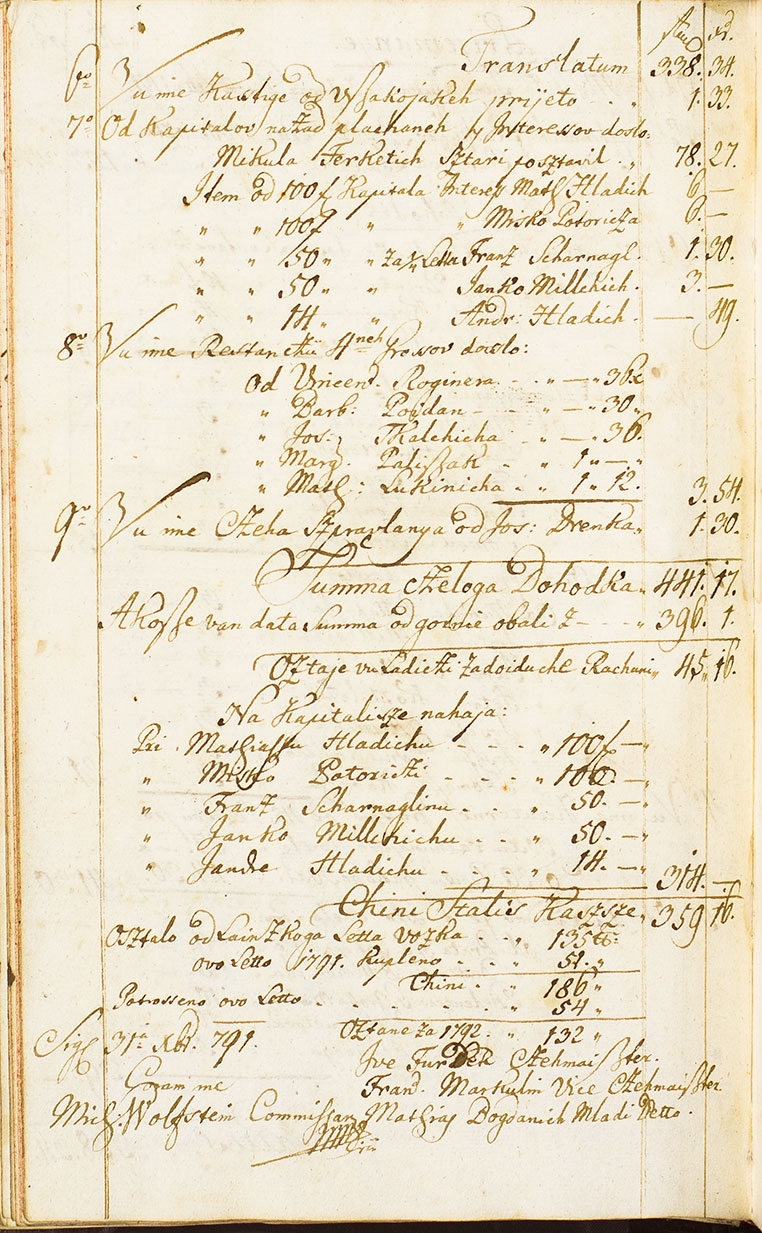 fl. xr.
Translatum 338. 34.
6to Vu ime Kastige od vszakojakeh prijeto - - „ 1. 33.
7o Od Kapitalov nazad plachaneh y Interessov doslo:
Mikula Ferketich Sztari posztavil . „ 78. 27.
Item od 100f Kapitala Interess Math Hladich 6 —
„ „ 100f „ „ Misko Potoricza 6. —
„ „ 50 „ „ za ½ Letta Franz Scharnagl . 1. 30.
„ „ 50 „ „ Janko Millchich . 3. —
„ „ 14 „ „ Andr: Hladich . — 49.
8o Vu ime Restanczii 4neh Grossov doslo:
Od Vincen. Roginera - - „ — „ 36x
„ Barb: Pojdan - - „ — „ 30 „
„ Jos: Tkalchicha - „ — „ 36.
„ Marg. Palissak - „ 1 „ — „
„ Math: Lukinicha . „ 1 „ 12. 3. 54.
9o Vu ime Czeha Szpravlanya od Jos: Drenka „ 1. 30.
Summa czeloga Dohodka „ 441. 17.
Akosse van data Summa od gornie obali z - - - „ 396. 1.
Osztaje vu Ladiczi za doiduche Rachuni „ 45 „ 16.
Na Kapitalisze nahaja:
Pri Mathiassu Hladichu - - - „ 100f — „
„ Misko Potoriczi - - - „ 100. — „
„ Franz Scharnaglinu - - „ 50. — „
„ Janko Millchichu - - „ 50. — „
„ Jandre Hladichu - - - - „ 14. — „ 314. —
Chini Stalis Kaszsze „ 359 16.
Osztalo od Lainzkoga Letta Vozka - - „ 135 ℔:
ovo Letto 1791. Kupleno - - „ 51. „
Chini - „ 186 „
Potrosseno ovo Letto - - - - - - „ 54 „
Sigl 31a Xbr. 791. Osztane za 1792. „ 132 „
Ive Furdek Czehmaisster.
Coram me Franc. Markulin Vice Czehmaisster.
Mich: Wolfstein Commissar Mathias Bogdanich Mladi Detto.